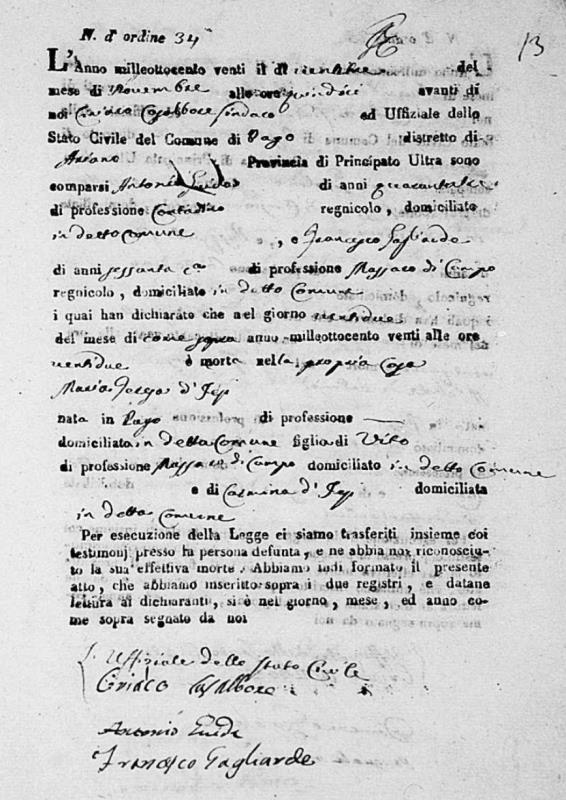 N. d'ordine 34
13
L'Anno milleottocento venti il dì ventitre del
mese di Novembre alle ore quindici avanti di
noi Ciriaco Casalbore Sindaco ed Uffiziale dello
Stato Civile del Comune di Pago distretto di
Ariano Provincia di Principato Ultra sono
comparsi Antonio Guida di anni quarantatre
di professione Contadino regnicolo, domiciliato
in detto Comune , e Francesco Gagliarde
di anni sessanta di professione Massaro di Campo
regnicolo, domiciliato in detto Comune
i quai han dichiarato che nel giorno ventidue
del mese di come sopra anno milleottocento venti alle ore
ventidue è morta nella propria Casa
Maria Teresa d'
nata in Pago di professione —
domiciliato in detto Comune figlia di Vito
di professione Massaro di Campo domiciliato in detto Comune
e di Carmina d' domiciliata
in detto Comune
Per esecuzione della Legge ci siamo trasferiti insieme coi
testimonj presso la persona defunta, e ne abbia noi riconosciu-
to la sua effettiva morte. Abbiamo indi formato il presente
atto, che abbiamo inscritto sopra i due registri, e datane
lettura ai dichiaranti, si è nel giorno, mese, ed anno co-
me sopra segnato da noi
L'Uffiziale dello Stato Civile
Ciriaco Casalbore
Antonio Guida
Francesco Gagliarde